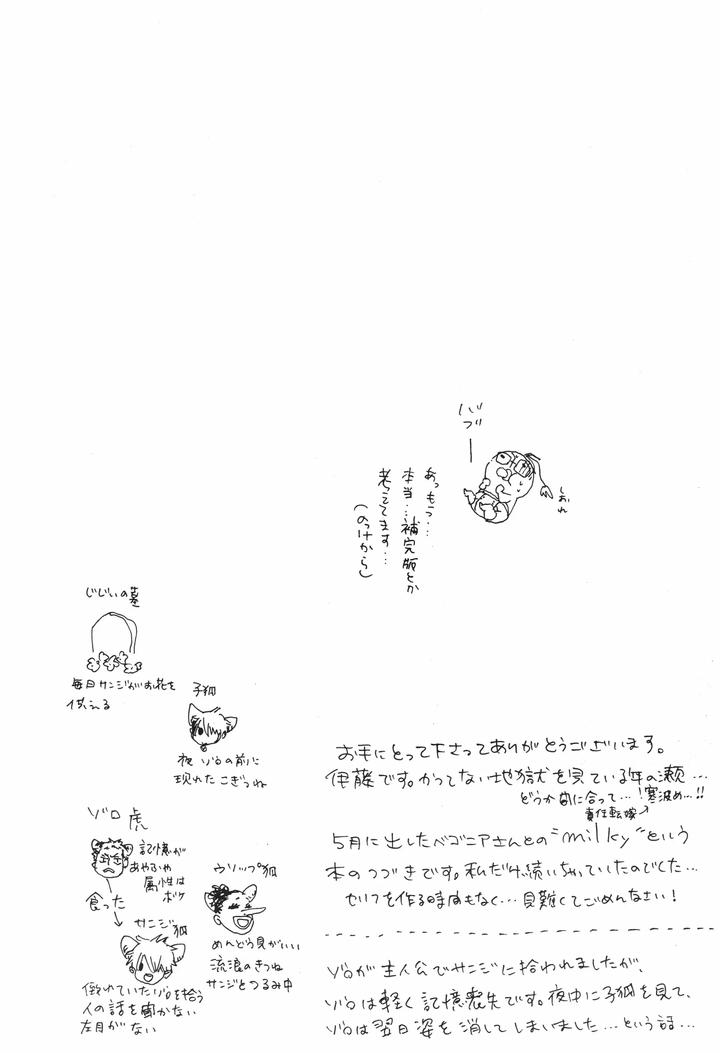 バブ
しおれ
あっもう…
本当…補完版とか
考ってます…
(のっけから)
お手にとって下さってありがとうございます。
伊藤です。かつてない地獄を見ている年の瀬…
どうか間に合って…!寒波め…!!
責任転嫁↗
5月に出したベゴニアさんとの"milky"という
本のつづきです。私だけ続いちゃっていたのでした…
セリフを作る時間もなく…見難くてごめんなさい!
ゾロが主人公でサンジに拾われましたが、
ゾロは軽く記憶喪失です。夜中に子狐を見て、
ゾロは翌日姿を消してしまいました…という話…
じじいの墓
毎日サンジがお花を
供える
子狐
夜ゾロの前に
現れたこぎつね
ゾロ虎
記憶が
あやふや
属性は
ボケ
食った
サンジ狐
倒れていたゾロを拾う
人の話を聞かない
左目がない
ウソップ狐
めんどう見がいい
流浪のきつね
サンジとつるみ中